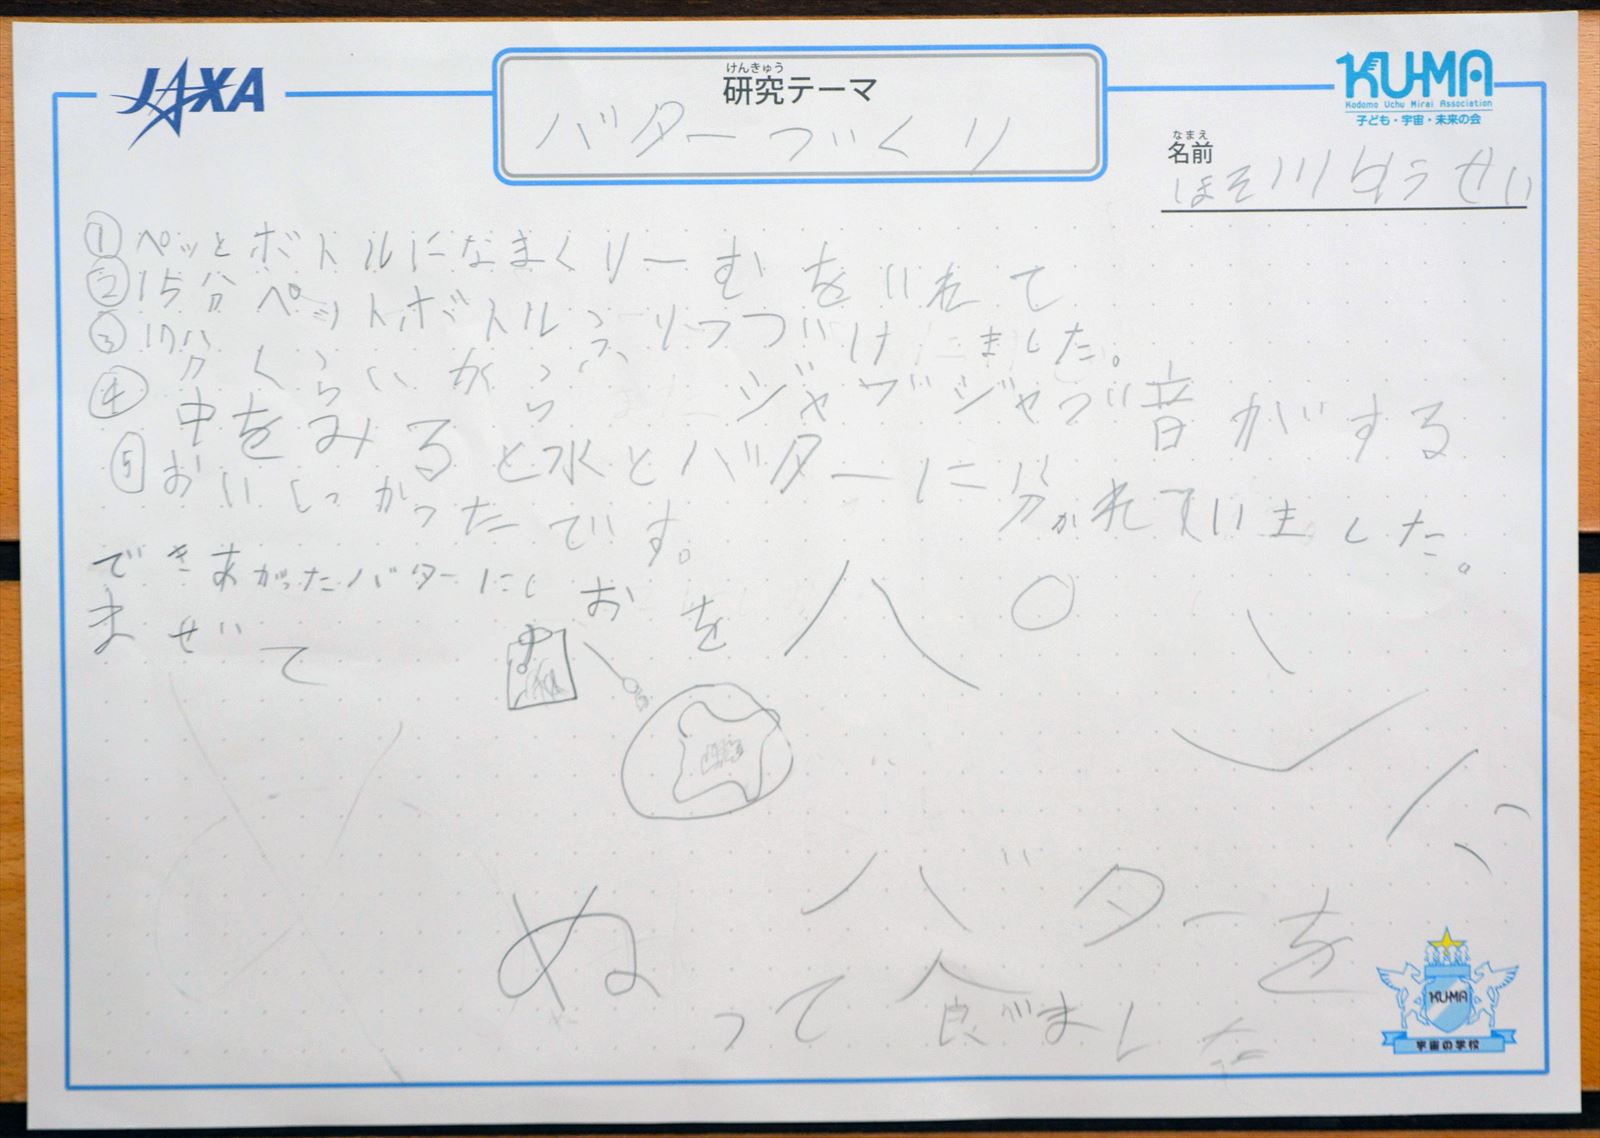 JAXA
けんきゅう
研究テーマ
バターづくり
KU-MA
Kodomo Uchu Mirai Association
子ども・宇宙・未来の会
なまえ
名前
①ペッとボトルになまくりーむをいれて
②15分ペットボトルふりつづけました。
③17分くらいからジャブジャブ音がする
④中をみると水とバターに分かれていました。
⑤おいしかったです。
できあがったバターにしおを
まぜて
パンに
バターを
ぬって食べました
KU-MA
宇宙の学校